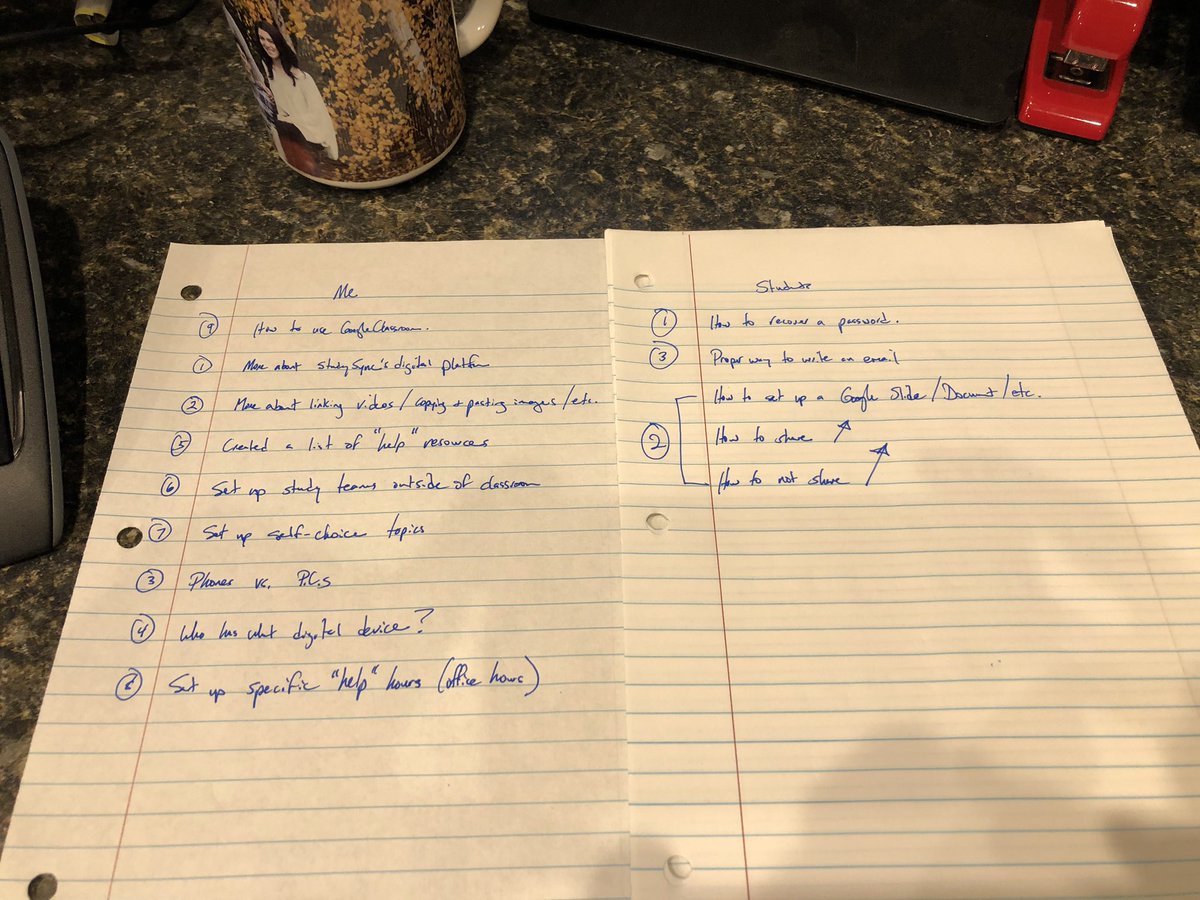 Me
9 How to use Google Classroom.
1 More about StudySync's digital platform
2 More about linking videos/copying + pasting images/etc.
5 Created a list of "help" resources
6 Set up study teams outside of classroom
7 Set up self-choice topics
3 Phones vs. P.C.s
4 Who has what digital device?
8 Set up specific "help" hours (office hours)
Students
1 How to recover a password.
3 Proper way to write an email
How to set up a Google Slide/Document/etc.
2 How to share
How to not share